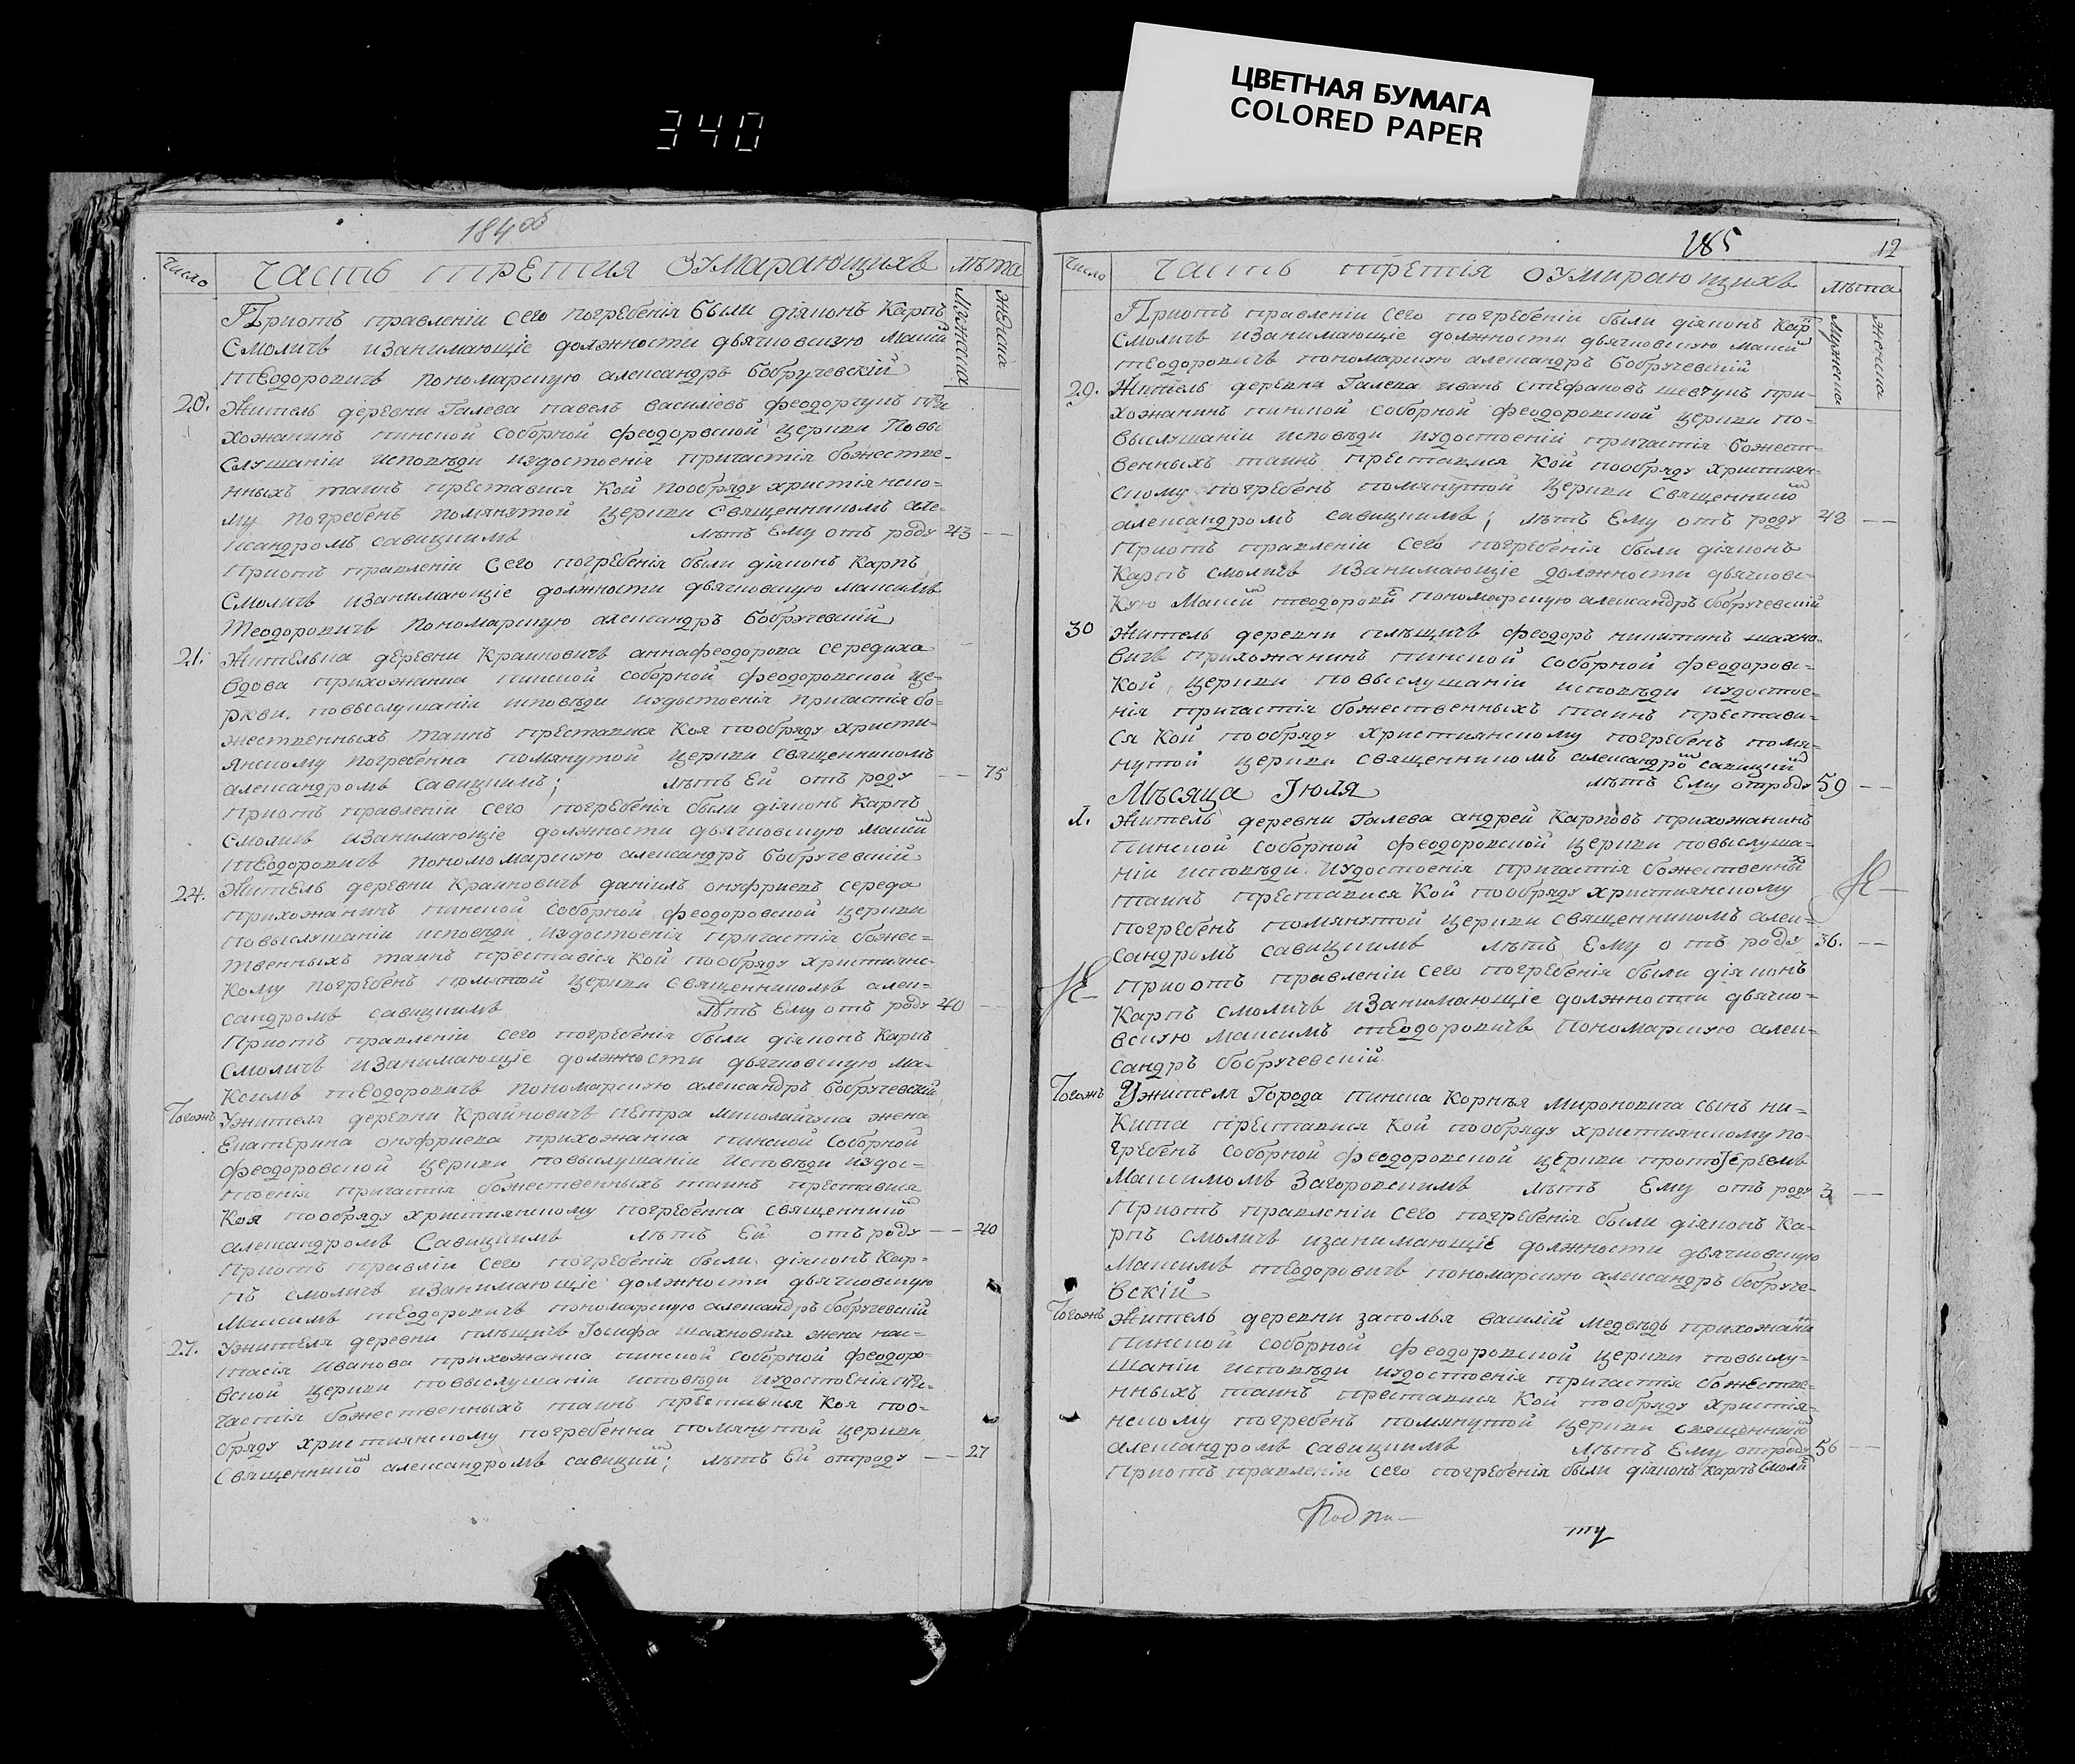 ЦВЕТНАЯ БУМАГА
COLORED PAPER
340
184 об
Число Часть третия оумарающихъ лѣта
Мужеска Женска
Приотъ правленіи сего погребенія были діяконъ Карпъ
Смоличъ изанимающіе должности дьячковскую Максим
теодоровичъ пономарскую александръ бобручевскій
20. Житель деревни Галева павелъ василіевъ феодорчукъ при
хожанинъ пинской соборной феодоровской церкви Повы
слушаніи исповѣди иудостоенія причастія божестве-
нныхъ таинъ преставися Кой пообряду христіянско-
му погребенъ помянутой церкви священникомъ але-
ксандромъ савицкимъ лѣтъ Ему отъ роду 43 —
Приотъ правленіи сего погребенія были діяконъ Карпъ
Смоличъ изанимающіе должности дьячковскую максимъ
Теодоровичъ пономарскую александръ бобручевскій
21. Жителька деревни Крайновичъ анна феодорова середиха
вдова прихожанка пинской соборной феодоровской це-
ркви. повыслушаніи исповѣди иудостоенія причастія бо-
жественныхъ таинъ преставися Коя пообряду христи-
янскому погребенна помянутой церкви священникомъ
александромъ савицкимъ; лѣтъ Ей отъ роду — 75
Приотъ правленіи сего погребенія были діяконъ Карпъ
Смоличъ изанимающіе должности дьячковскую максим
теодоровичъ пономомарскую александръ бобручевскій
24. Житель деревни Крайновичъ даніилъ онуфріевъ середа
прихожанинъ пинской соборной феодоровской церкви
повыслушаніи исповѣди иудостоенія причастія божес-
твенныхъ таинъ преставіся Кой пообряду христіянс-
кому погребенъ помятой церкви священникомъ алек-
сандромъ савицкимъ Лѣтъ Ему отъ роду 40 —
Приотъ правленіи сего погребенія были діяконъ Карпъ
Смоличъ изанимающіе должности дьячковскую ма-
ксимъ теодоровичъ пономарскую александръ бобручевскій
Тогожъ Ужителя деревни Крайновичъ петра миколайчука жена
Екатерина онуфриева прихожанка пинской соборной
феодоровской церкви повыслушаніи исповѣди иудос-
тоенія причастія божественныхъ таинъ преставися
Коя пообряду християнскому погребенна священником
александромъ Савицкимъ лѣтъ Ей отъ роду — — 40
Приотъ правліи сего погребенія были діяконъ Кар-
пъ смоличъ изанимающіе должности дьячковскую
Максимъ теодоровичъ пономарскую александръ бобручевскій
27. Ужителя деревни плѣщичъ Іосифа шахновича жена нас-
тасія иванова прихожанка пинской соборной феодоро-
вской церкви повыслушаніи исповѣди иудостоенія при-
частія божественныхъ таинъ преставися Коя поо-
бряду християнскому погребенна помянутой церкви
Священником александромъ савицким; лѣтъ Ей отроду — — 27
185
12
Число Часть третія оумирающихъ лѣта
Мужеска Женска
Приотъ правленіи сего погребеніи были діяконъ Карп
Смоличъ изанимающіе должности дьячковскую максим
теодоровичъ пономарскую александръ бобручевскій
29. Житель деревни Галева иванъ стефановъ шевчукъ при-
хожанинъ пинской соборной феодоровской церкви по-
выслушаніи исповѣди иудостоеніи причастія божест-
венныхъ таинъ преставися Кой пообряду християн-
скому погребенъ помянутой церкви священником
александромъ савицкимъ; лѣтъ Ему отъ роду 48 —
Приотъ правленіи сего погребенія были діяконъ
Карпъ смоличъ изанимающіе должности дьячковс-
кую Максим теодорови пономарскую александръ бобручевскій
30 Житель деревни плѣщичъ феодоръ никитинъ шахно-
вичъ прихожанинъ пинской соборной феодоровс-
кой церкви повыслушаніи исповѣди иудостое-
нія причастія божественныхъ таинъ престави-
ся Кой пообряду християнскому погребенъ помя-
нутой церкви священникомъ александро савицким
лѣтъ Ему отроду 59 —
Мѣсяца Іюля
1. Житель деревни Галева андрей Карповъ прихожанинъ
пинской соборной феодоровской церкви повыслуша-
ніи исповѣди иудостоенія причастія божественны
таинъ преставися Кой пообряду християнскому
погребенъ помянутой церкви священникомъ алек-
сандромъ савицкимъ лѣтъ Ему отъ роду 36. —
Приотъ правленіи сего погребенія были діяконъ
Карпъ смоличъ изанимающіе должности дьячко-
вскую максимъ теодоровичъ Пономарскую алек-
сандръ бобручевскій
Тогожъ Ужителя Города пинска Корнѣя мироновича сынъ ни-
кита преставися Кой пообряду християнскому по-
гребенъ соборной феодоровской церкви протоіереемъ
Максимомъ Загоровскимъ лѣтъ Ему отъ роду 3 —
Приотъ правленіи сего погребенія были діяконъ Ка-
рпъ смоличъ изанимающіе должности дьячковскую
Максимъ теодоровичъ пономарскую александръ бобруче-
вскій
Тогожъ Житель деревни заполья василій медвѣдь прихожани
пинской соборной феодоровской церкви повыслу-
шаніи исповѣди иудостоенія причастія божестве-
нныхъ таинъ преставися Кой пообряду христія-
нскому погребенъ помянутой церкви священником
александромъ савицкимъ лѣтъ Ему отроду 56 —
Приотъ правленіи сего погребенія были діяконъ карпъ Смоли
Подпи-
ту